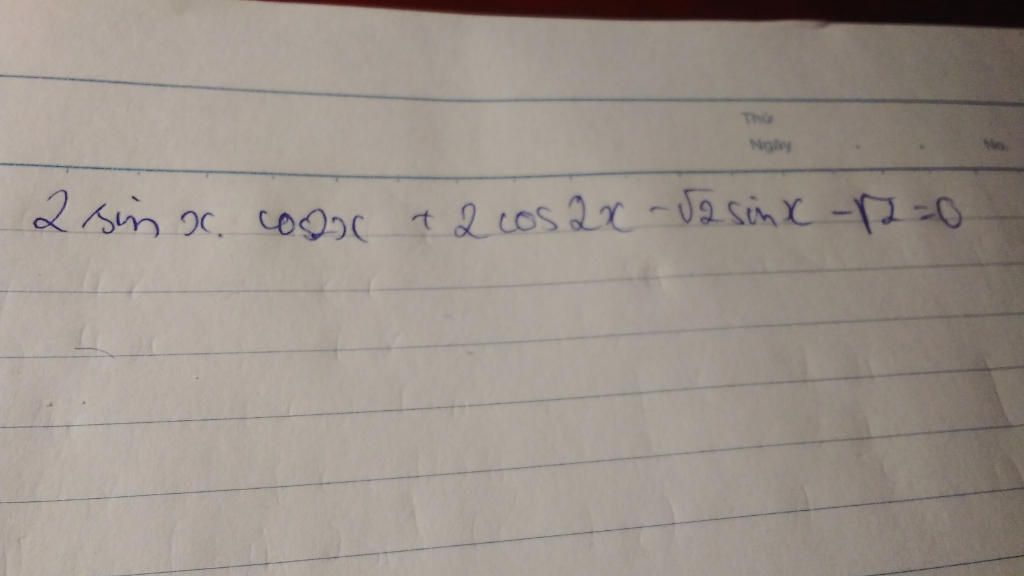 Thứ
Ngày . . No.
2 sin x. cos2x + 2 cos 2x - √2 sin x - √2 = 0